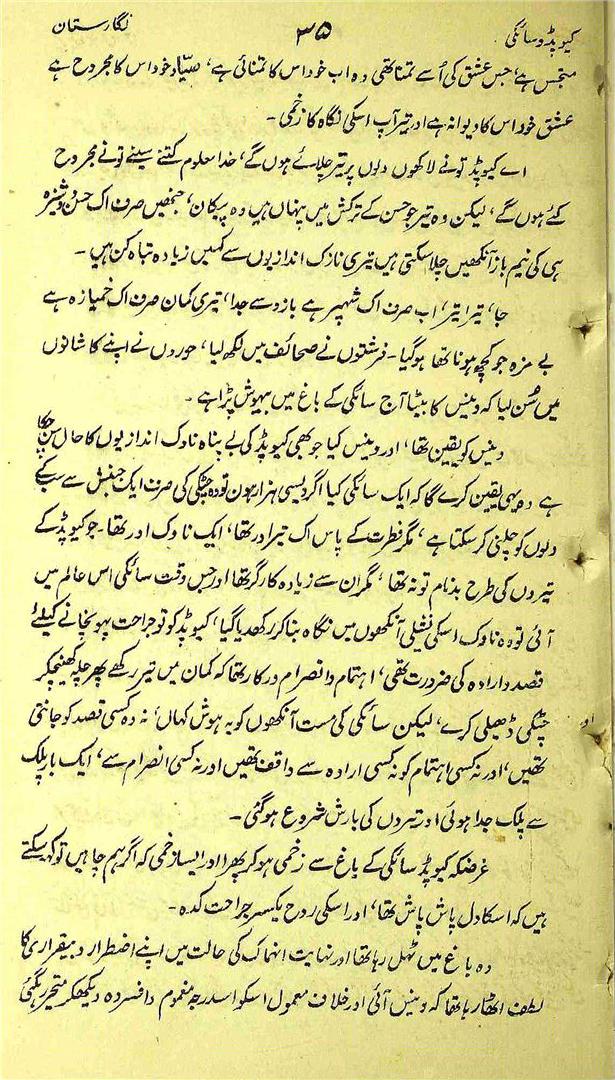 کیوپڈ و سائکی ۳۵ نگارستان
متجس ہے، جس عشق کی اُسے تمنا تھی وہ اب خود اس کا تمنائی ہے، صیّاد خود اس کا مجروح ہے
عشق خود اس کا دیوانہ ہے اور تیر آپ اسکی نگاہ کا زخمی ۔
اے کیوپڈ تو نے لاکھوں دلوں پر تیر چلائے ہوں گے، خدا معلوم کتنے سینے تو نے مجروح
کئے ہوں گے، لیکن وہ تیر جو حسن کے ترکش میں پنہاں ہیں وہ پیکان، جنھیں صرف اک حسن دوشیزہ
ہی کی نیم باز آنکھیں چلا سکتی ہیں تیری نازک اندازیوں سے کہیں زیادہ تباہ کن ہیں ۔
جا، تیرا تیر، اب صرف اک شہپر ہے بازو سے جدا، تیری کمان صرف اک خمیازہ ہے
بے مزہ جو کچھ ہونا تھا ہو گیا ۔ فرشتوں نے صحائف میں لکھ لیا، حوروں نے اپنے کاشانوں
میں سُن لیا کہ وینس کا بیٹا آج سائکی کے باغ میں بیہوش پڑا ہے ۔
وینس کو یقین تھا، اور وینس کیا جو بھی کیوپڈ کی بے پناہ ناوک اندازیوں کا حال سن چکا
ہے وہ یہی یقین کرے گا کہ ایک سائکی کیا اگر ویسی ہزار ہون تو وہ چٹکی کی صرف ایک جنبش سے سب کے
دلوں کو چلنی کر سکتا ہے، مگر فطرت کے پاس اک تیر اور تھا، ایک ناوک اور تھا ۔ جو کیوپڈ کے
تیروں کی طرح بدنام تو نہ تھا، مگر ان سے زیادہ کارگر تھا اور جس وقت سائکی اس عالم میں
آئی تو وہ ناوک اسکی نشیلی آنکھوں میں نگاہ بنا کر رکھدیا گیا، کیوپڈ کو تو جراحت پہونچانے کیلئے
قصد و ارادہ کی ضرورت تھی، اہتمام و انصرام درکار تھا کہ کمان میں تیر رکھے پھر چلہ کھینچکر
چٹکی ڈھیلی کرے، لیکن سائکی کی مست آنکھوں کو یہ ہوش کہاں، نہ وہ کسی قصد کو جانتی
تھیں، اور نہ کسی اہتمام کو نہ کسی ارادہ سے واقف تھیں اور نہ کسی انصرام سے، ایک بار پلک
سے پلک جدا ہوئی اور تیروں کی بارش شروع ہو گئی ۔
غرضکہ کیوپڈ سائکی کے باغ سے زخمی ہو کر پھرا اور ایسا زخمی کہ اگر ہم چاہیں تو کہہ سکتے
ہیں کہ اسکا دل پاش پاش تھا، اور اسکی روح یکسر جراحت کدہ ۔
وہ باغ میں ٹہل رہا تھا اور نہایت انہماک کی حالت میں اپنے اضطرار و بیقراری کا
لطف اٹھا رہا تھا کہ وینس آئی اور خلاف معمول اسکو اسدرجہ مغموم و افسردہ دیکھکر متحیر رہگئی